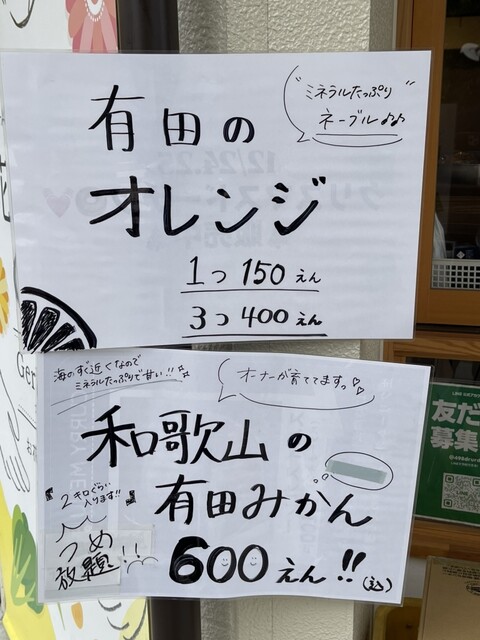 有田の
"ミネラルたっぷり"
ネーブル♪♪
オレンジ
1つ 150えん
3つ 400えん
海のすぐ近くなので
ミネラルたっぷりで甘い!!
オーナーが育ててますっ♡♡
和歌山の
有田みかん
2キロぐらい
入ります!!
つめ
放題!!
600えん!!(込)
友だ
募集